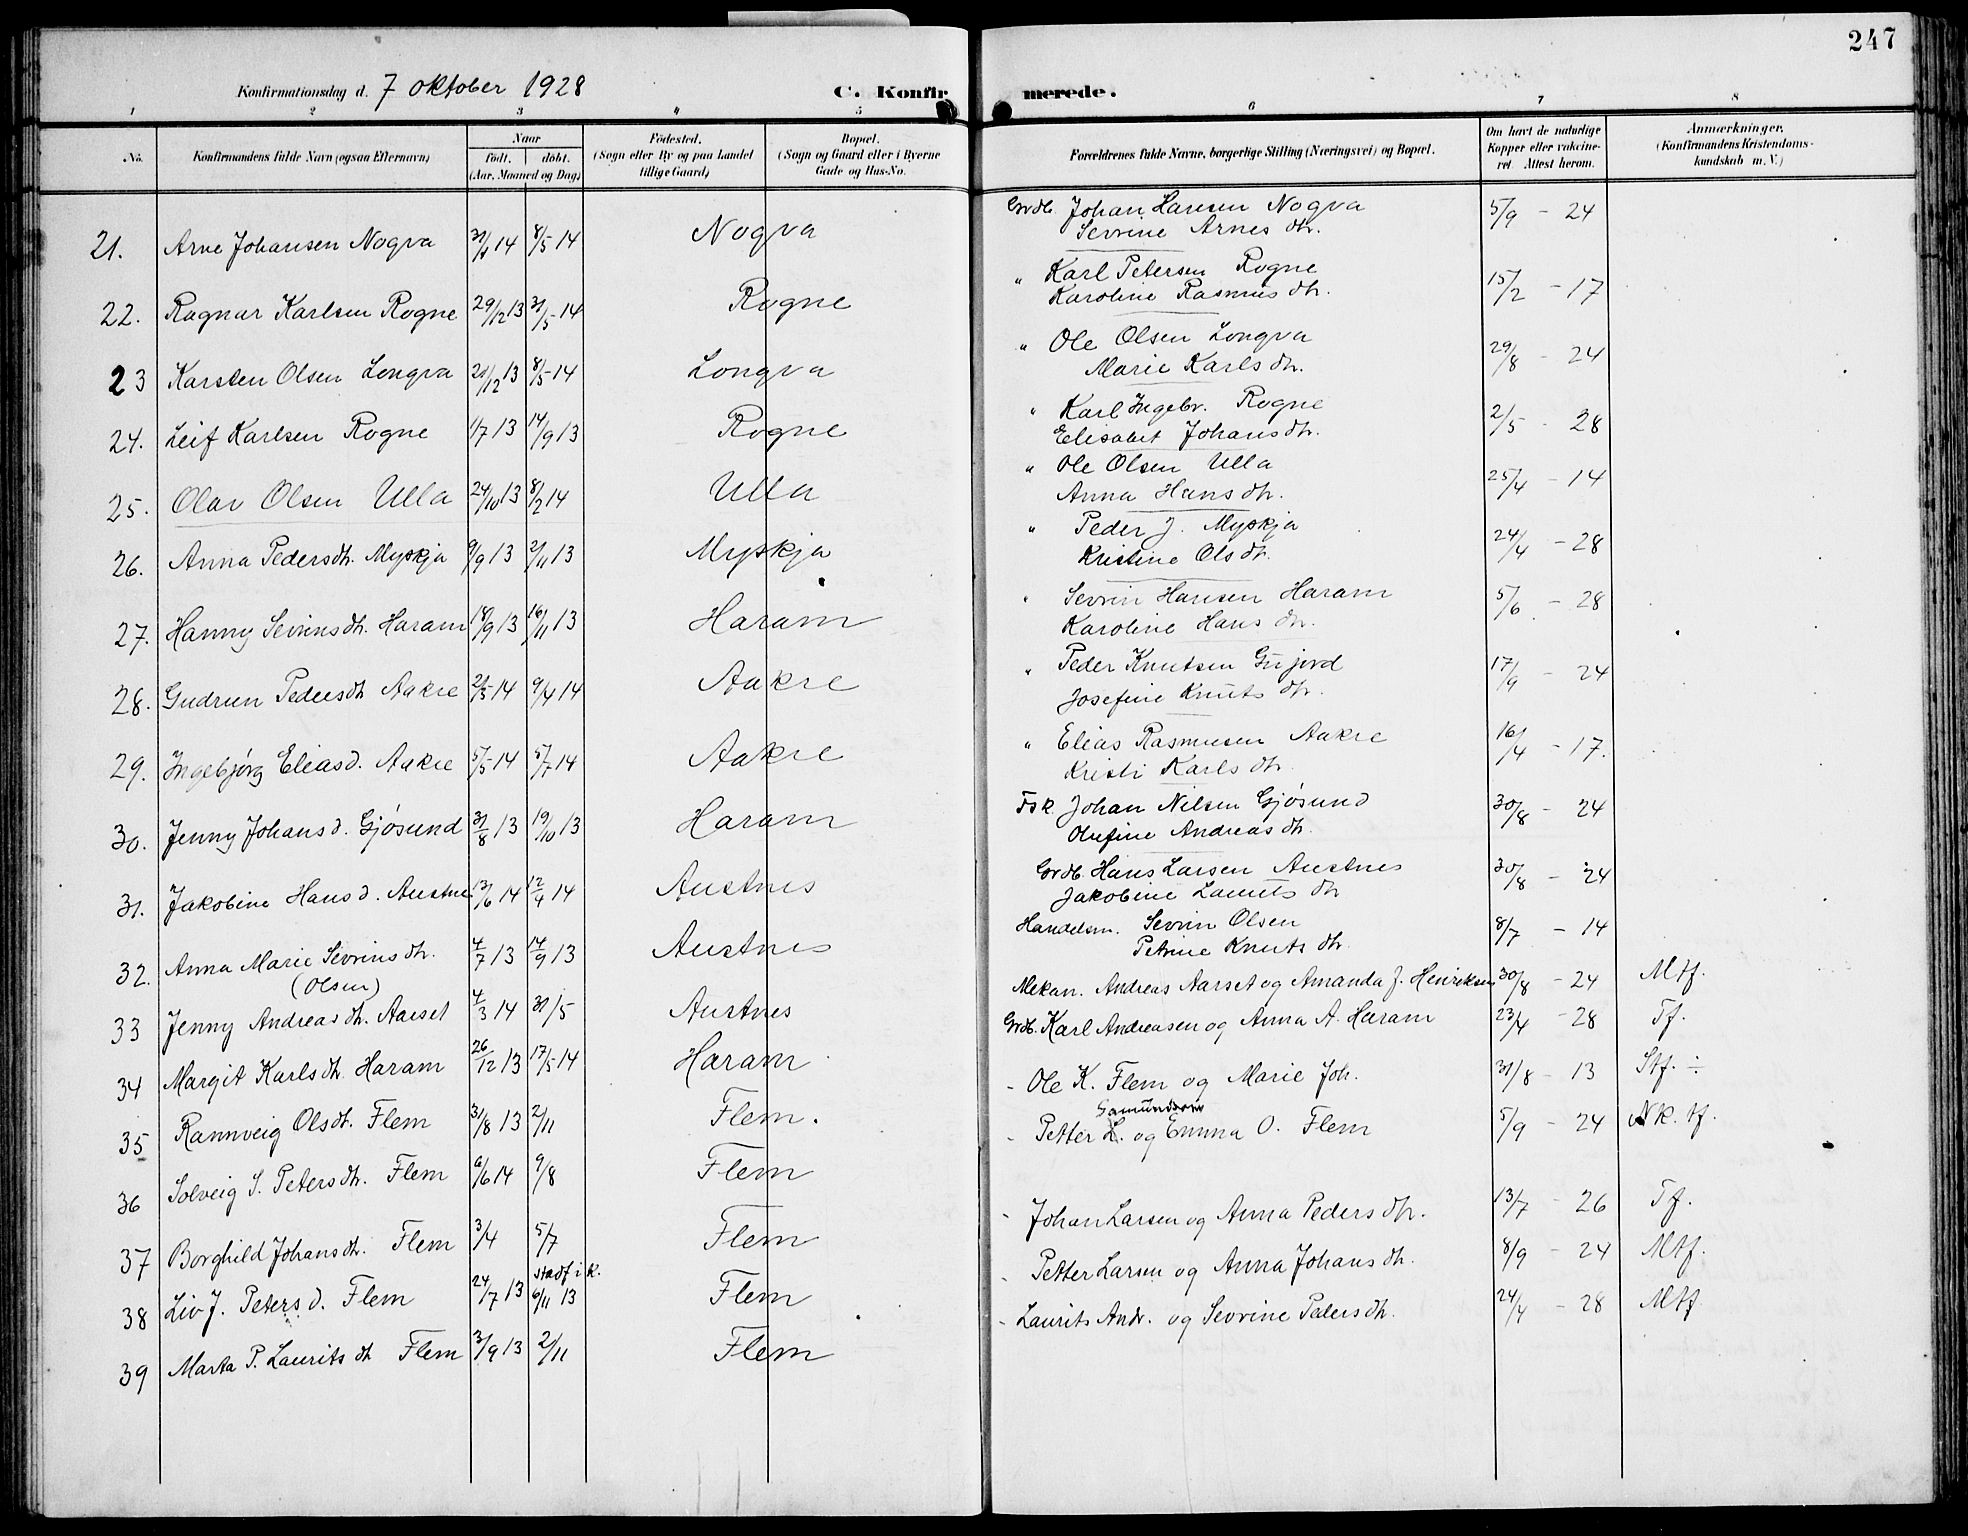 247
Konfirmationsdag d. 7 oktober 1928 C. Konfirmerede.
1 2 3 4 5 6 7 8
No.
Konfirmandens fulde Navn (ogsaa Efternavn)
Naar
födt. döbt.
(Aar, Maaned og Dag)
Födested.
(Sogn eller By og paa Landet
tillige Gaard)
Bopæl.
(Sogn og Gaard eller i Byerne
Gade og Hus-No.
Forældrenes fulde Navne, borgerlige Stilling (Næringsvei) og Bopæl.
Om havt de naturlige
Kopper eller vakcine-
ret. Attest herom.
Anmærkninger.
(Konfirmandens Kristendoms-
kundskab m. V.)
21. Arne Johansen Nogva 14 8/5 14 Nogva Grdb. Johan Larsen Nogva 5/9 - 24
Sevrine Arnes dtr.
22. Ragnar Karlsen Rogne 29/12 13 31/5 14 Rogne " Karl Petersen Rogne 15/2 - 17
Karoline Rasmus dtr.
23 Karsten Olsen Longva 21/12 13 8/5 14 Longva " Ole Olsen Longva 29/8 - 24
Marie Karls dtr.
24. Leif Karlsen Rogne 1/7 13 14/9 13 Rogne " Karl Ingebr. Rogne 2/5 - 28
Elisabet Johans dtr.
25. Olav Olsen Ulla 24/10 13 8/2 14 Ulla " Ole Olsen Ulla 25/4 - 14
Anna Hans dtr.
26. Anna Pedersdtr. Myskja 9/9 13 2/11 13 Myskja " Peder J. Myskja 24/4 - 28
Kristine Ols dtr.
27. Hanny Sevrinsdtr. Haram 18/9 13 16/11 13 Haram " Sevrin Hansen Haram 5/6 - 28
Karoline Hans dtr.
28. Gudrun Pedersdtr Aakre 14 9/4 14 Aakre " Peder Knutsen Gujord 17/9 - 24
Josefine Knuts dtr.
29. Ingebjørg Eliasd. Aakre 5/5 14 5/7 14 Aakre " Elias Rasmusen Aakre 16/4 - 17.
Kristi Karls dtr.
30. Jenny Johansd. Gjøsund 31/8 13 19/10 13 Haram Fsk. Johan Nilsen Gjøsund 30/8 - 24
Olufine Andreas dtr.
31. Jakobine Hansd. Austnes 14 12/4 14 Austnes Grdb. Hans Larsen Austnes 30/8 - 24
Jakobine Lauuits dtr
32. Anna Marie Sevrinsdtr. 4/7 13 14/9 13 Austnes Handelsm. Sevrin Olsen 8/7 - 14
(Olsen) Petrine Knuts dtr.
33 Jenny Andreasdtr. Aarset 4/3 14 31/5 Austnes Mekan. Andreas Aarset og Amanda J. Henriksen 30/8 - 24 Mtf.
34 Margit Karlsdtr. Haram 26/12 13 17/5 14 Haram Grdb. Karl Andreasen og Anna A. Haram 23/4 - 28 Tf.
35 Rannveig Olsdt. Flem 31/8 13 2/11 Flem. - Ole K. Flem og Marie Joh. 31/8 - 13 Stf. ÷
36 Solveig S. Petersdtr. Flem 6/6 14 9/8 Flem - Petter L. og Emma O. Flem 5/9 - 24
37 Borghild Johansdtr. Flem 3/4 5/7 Flem - Johan Larsen og Anna Pedersdtr. 13/7 - 26 Tf.
stadf i k.
38 Liv J. Petersd. Flem 24/7 13 6/11 13 Flem - Petter Larsen og Anna Johansdtr. 8/9 - 24 Mtf.
39 Marta P. Lauritsdtr Flem 3/9 13 2/11 Flem - Laurits Andr. og Sevrine Pedersdtr. 24/4 - 28 Mtf.